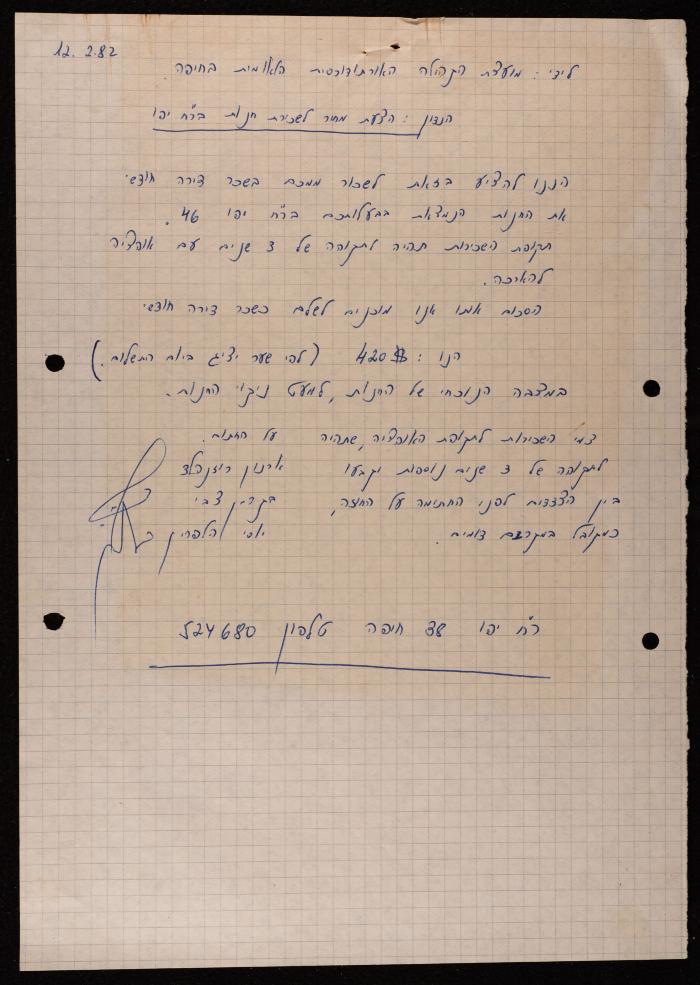 12.2.82
לידי: מועצת הקהילה האורתודוכסית הלאומית בחיפה.
הנדון: הצעת מחיר לשכירת חנות ברח' יפו
הננו להציע בזאת לשכור ממכם בשכר דירה חודשי
את החנות הנמצאת בבעלותכם ברח' יפו 46.
תקופת השכירות תהיה לתקופה של 3 שנים עם אופציה
להארכה.
הסכום אותו אנו מוכנים לשלם כשכר דירה חודשי
הנו: 420$ (לפי שער יציג ביום התשלום.)
במצבה הנוכחי של החנות, למעט ניקוי החנות.
דמי השכירות לתקופת האופציה, שתהיה
לתקופה של 3 שנים נוספות יקבעו
בין הצדדים לפני החתימה על החוזה,
כמקובל במקרים דומים.
על החתום.
ארנון רוזנפלד
צבי
יוסי הלפרין
רח' יפו 38 חיפה טלפון 524680